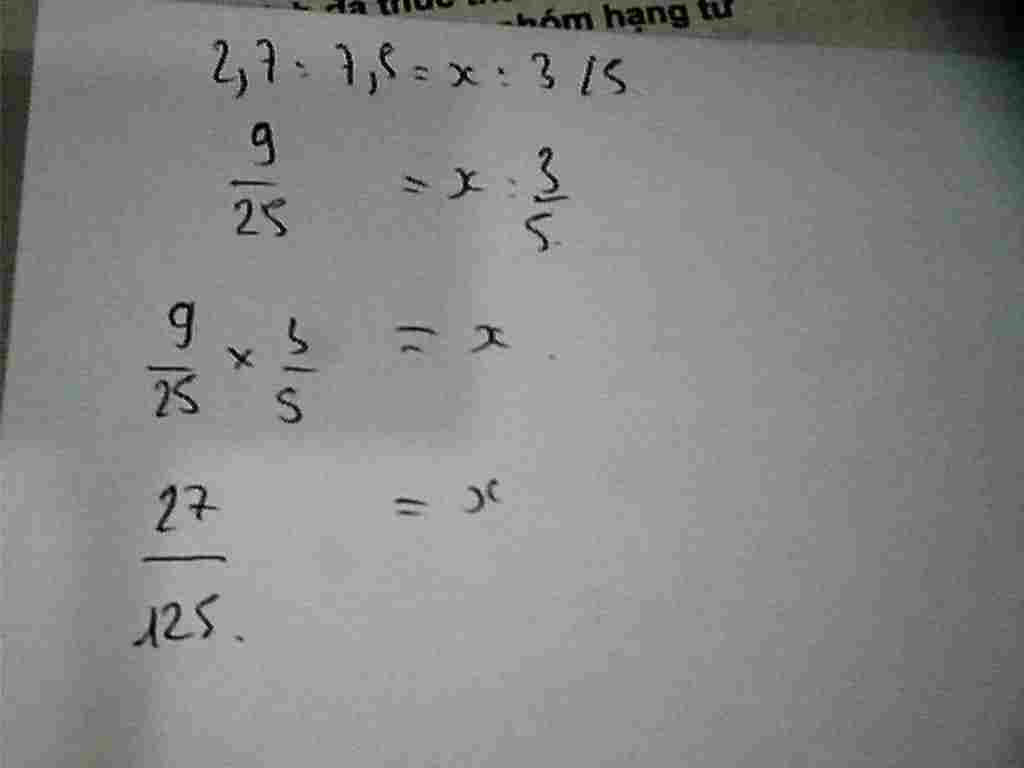 đa thức
nhóm hạng tử
2,7 : 7,5 = x : 3 / 5
9/25 = x : 3/5
9/25 × 3/5 = x
27/125. = x